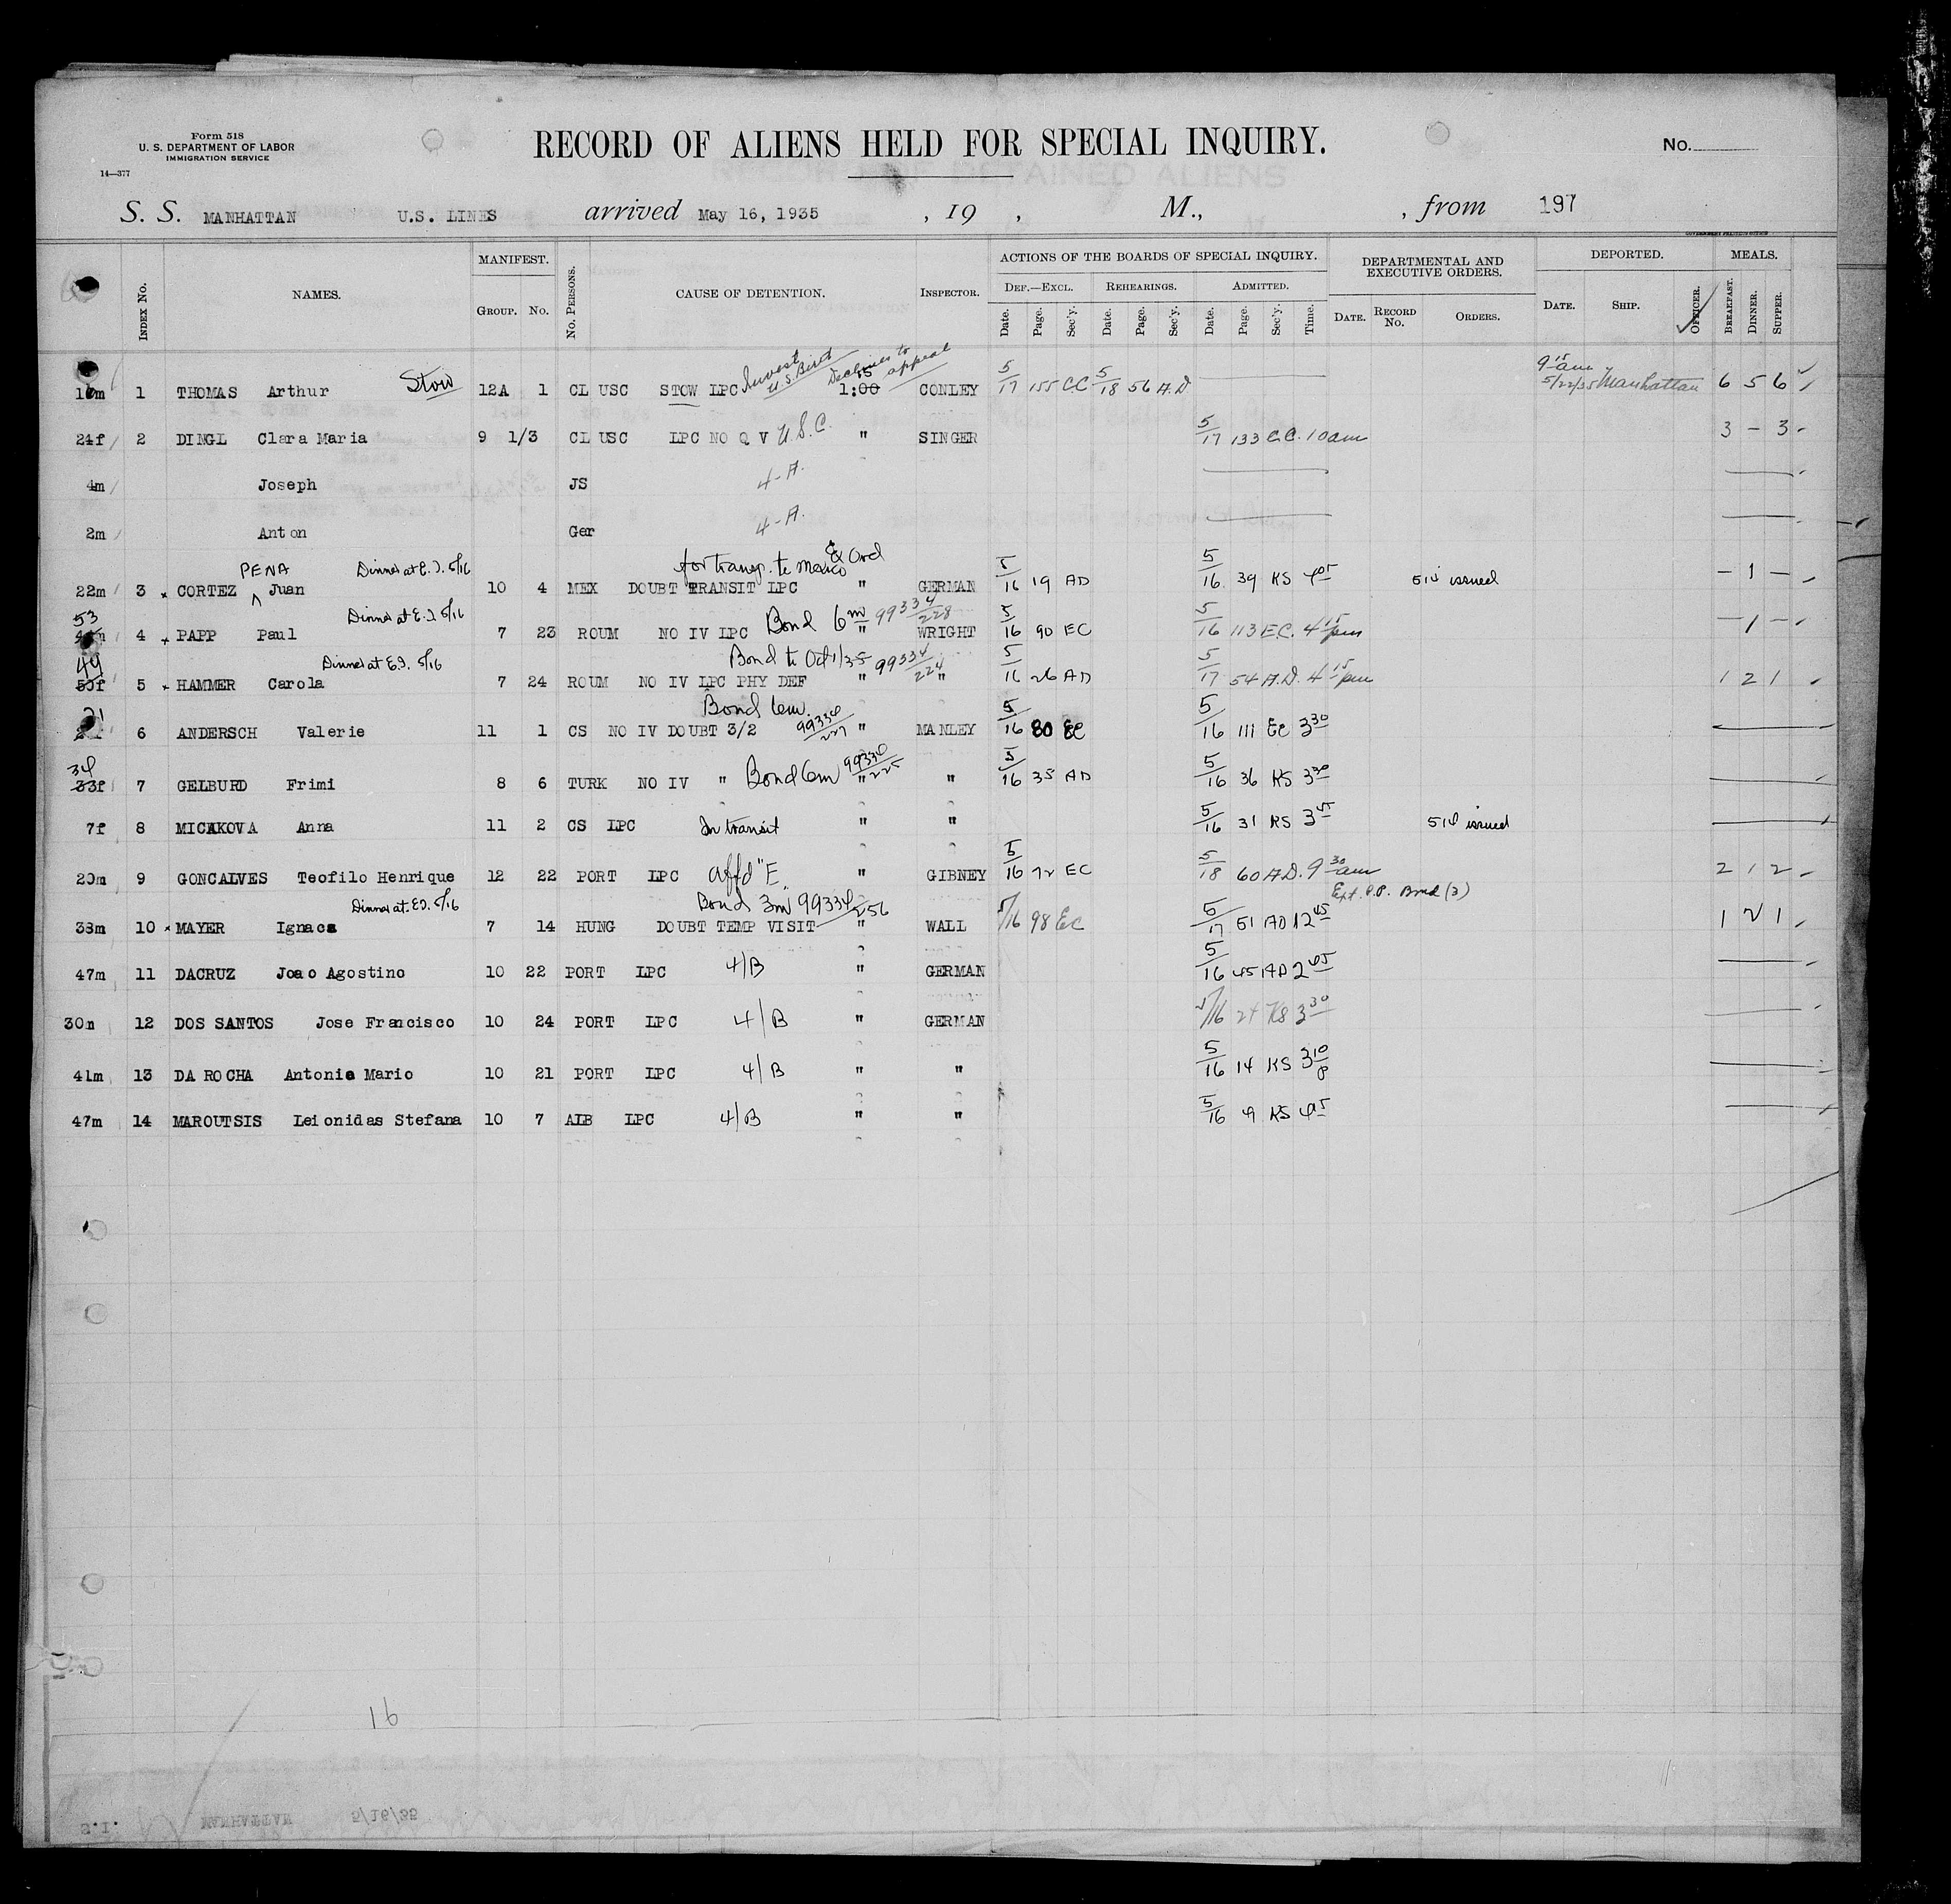 Form 518
U. S. DEPARTMENT OF LABOR
IMMIGRATION SERVICE
14—377
RECORD OF ALIENS HELD FOR SPECIAL INQUIRY.
No.
S. S. MANHATTAN U.S. LINES arrived May 16, 1935 , 19 , M., , from 197
INDEX No. NAMES. MANIFEST. GROUP. No. No. PERSONS. CAUSE OF DETENTION. INSPECTOR. ACTIONS OF THE BOARDS OF SPECIAL INQUIRY. DEPARTMENTAL AND EXECUTIVE ORDERS. DEPORTED. MEALS.
DEF.—EXCL. REHEARINGS. ADMITTED.
Date. Page. Sec'y. Date. Page. Sec'y. Date. Page. Sec'y. Time. DATE. RECORD No. ORDERS. DATE. SHIP. OFFICER. BREAKFAST. DINNER. SUPPER.
Invest U.S. Birth Declines to appeal 9 15 am
1 THOMAS Arthur Stow 12A 1 CL USC STOW LPC 1:00 CONLEY 5/17 155 CC 5/18 56 A.D. 5/22/35 Manhattan 6 5 6
24f 2 DINGL Clara Maria 9 1/3 CL USC LPC NO Q V U.S.C. " SINGER 5/17 133 C.C. 10 am 3 – 3
4m Joseph JS 4-A.
2m Anton Ger 4-A.
PENA Dinner at E.I. 5/16 for transp. to Mexico & Ord
22m 3 CORTEZ Juan 10 4 MEX DOUBT TRANSIT LPC " GERMAN 5/16 19 AD 5/16 39 KS 4 05 514 issued – 1 –
53 Dinner at E.I. 5/16 Bond 6m 99334/228
4 PAPP Paul 7 23 ROUM NO IV LPC " WRIGHT 5/16 90 EC 5/16 113 EC. 4 15 pm – 1 –
49 Dinner at E.I. 5/16 Bond to Oct 1/35 99334/224
50f 5 HAMMER Carola 7 24 ROUM NO IV LPC PHY DEF " " 5/16 26 AD 5/17 54 A.D. 4 15 pm 1 2 1
21 Bond 6m. 99334/227
6 ANDERSCH Valerie 11 1 CS NO IV DOUBT 3/2 " MANLEY 5/16 80 EC 5/16 111 EC 3 30
34 Bond 6m 99334/225
33f 7 GELBURD Frimi 8 6 TURK NO IV " " " 5/16 35 AD 5/16 36 KS 3 30
7f 8 MICAKOVA Anna 11 2 CS LPC In transit " " 5/16 31 KS 3 45 514 issued
20m 9 GONCALVES Teofilo Henrique 12 22 PORT LPC affd "E" " GIBNEY 5/16 72 EC 5/18 60 A.D. 9 30 am 2 1 2
Dinner at E.I. 5/16 Bond 3m 99334/256 Ext. P.P. Bond (3)
38m 10 MAYER Ignaca 7 14 HUNG DOUBT TEMP VISIT " WALL 5/16 98 EC 5/17 51 AD 12 45 1 2 1
47m 11 DACRUZ Joao Agostino 10 22 PORT LPC 4/B " GERMAN 5/16 45 AD 2 45
30m 12 DOS SANTOS Jose Francisco 10 24 PORT LPC 4/B " GERMAN 5/16 24 KS 3 30
41m 13 DA ROCHA Antonio Mario 10 21 PORT LPC 4/B " " 5/16 14 KS 3 10 P
47m 14 MAROUTSIS Leionidas Stefana 10 7 ALB LPC 4/B " " 5/16 9 KS 4 05
16
S.I. MANHATTAN 5/16/35